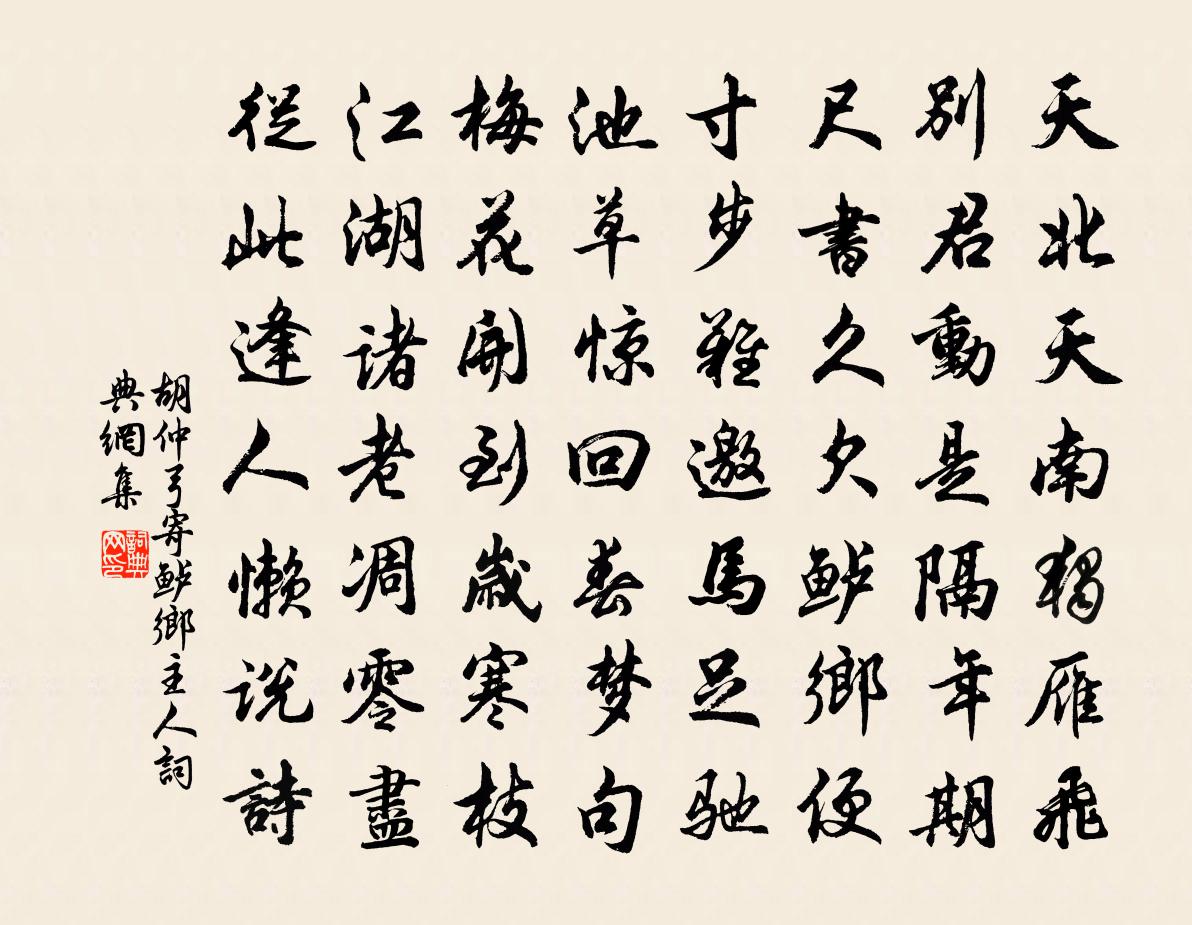 天北天南獨雁飛
別君動是隔年期
尺書久欠鲈鄉便
寸步難邀馬足馳
池草惊回春梦句
梅花開到歲寒枝
江湖诸老凋零盡
從此逢人懒说詩
胡仲弓寄鲈鄉主人詞
典網集
詞典
网印